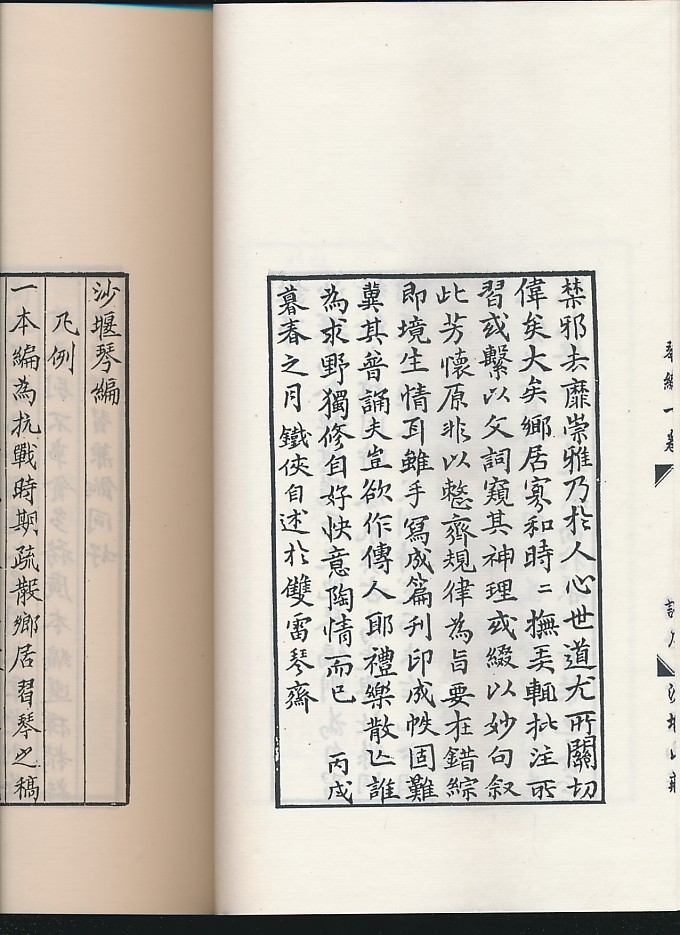 禁邪去靡崇雅乃於人心世道尤所關切
偉矣大矣鄉居寡和時〻撫弄輒批注所
習或繫以文詞窺其神理或綴以妙句叙
此芳懷原非以整齊規律為旨要在錯綜
即境生情耳雖手寫成篇刊印成帙固難
冀其普誦夫豈欲作傳人耶禮樂散亾誰
為求野獨修自好快意陶情而已　丙戌
暮春之月鐵俠自述於雙雷琴齋
沙堰琴編
凡例
一本編為抗戰時期疏散鄉居習琴之稿